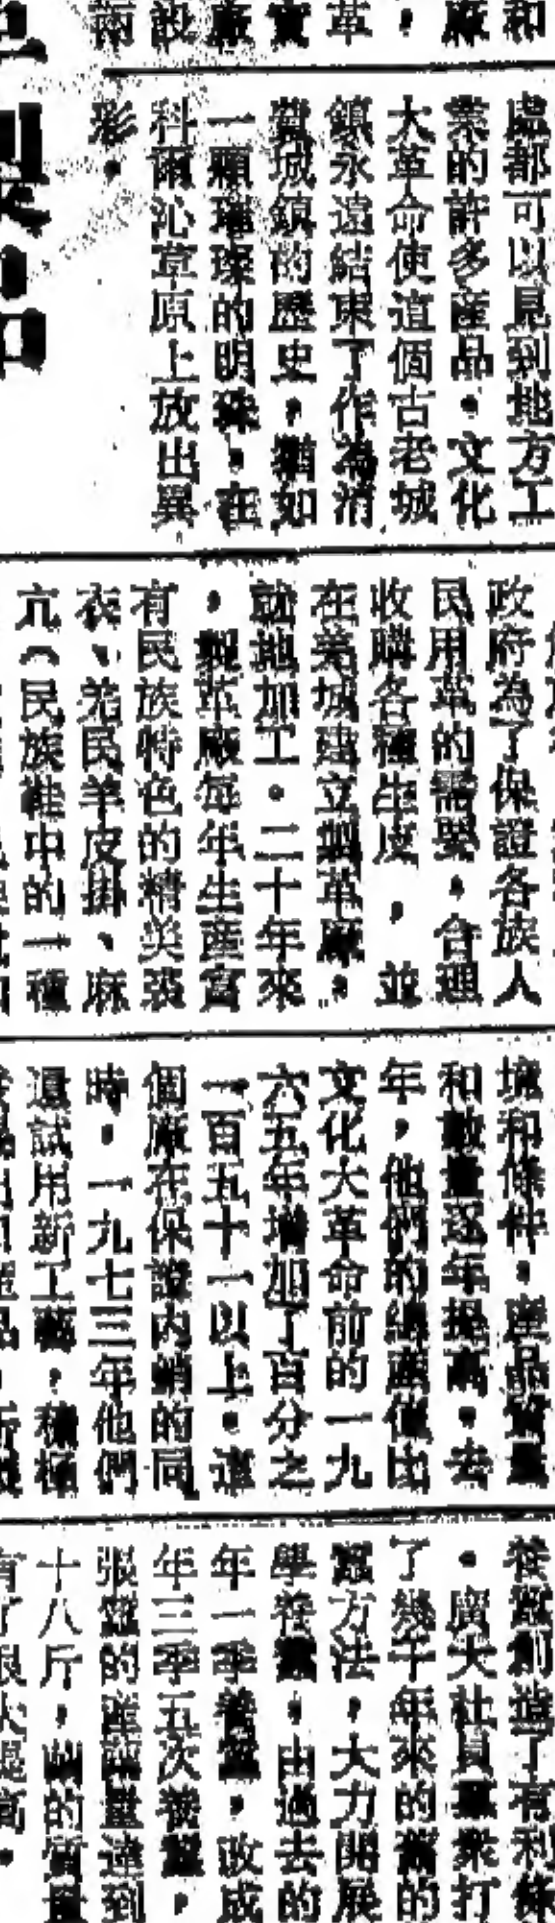 和
廠
，
革
實
廠
設
南
處都可以見到地方工
業的許多產品。文化
大革命使這個古老城
鎮永遠結束了作為消
費城鎮的歷史，猶如
一顆璀璨的明珠，在
科爾沁草原上放出異
彩。
政府為了保證各族人
民用革的需要，合理
收購各種生皮，並
在羌城建立製革廠，
就地加工。二十年來
，製革廠每年生產富
有民族特色的精美裘
衣、羌民羊皮掛、麻
亢（民族鞋中的一種
境和條件，產品質量
和數量逐年提高。去
年，他們的總產值比
文化大革命前的一九
六五年增加了百分之
一百五十一以上。這
個廠在保證內銷的同
時，一九七三年他們
還試用新工藝，積極
養蠶創造了有利條
。廣大社員羣衆打
了幾千年來的舊的
蠶方法，大力開展
學養蠶，由過去的
年一季養蠶，改成
年三季五次養蠶，
張蠶的產繭量達到
十八斤，繭的質量
有了很大提高。